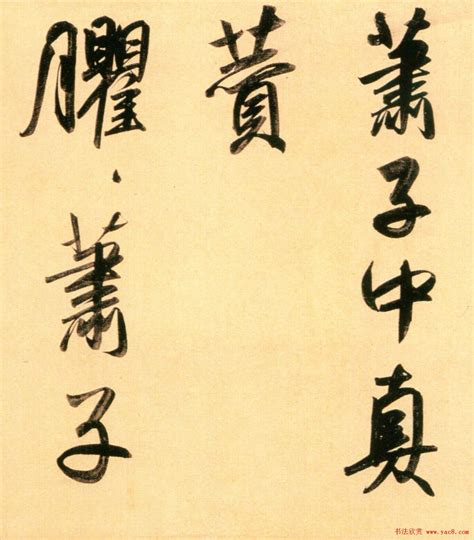 蕭子中真
贊
臞〻蕭子
书法欣赏 www.yac8.com